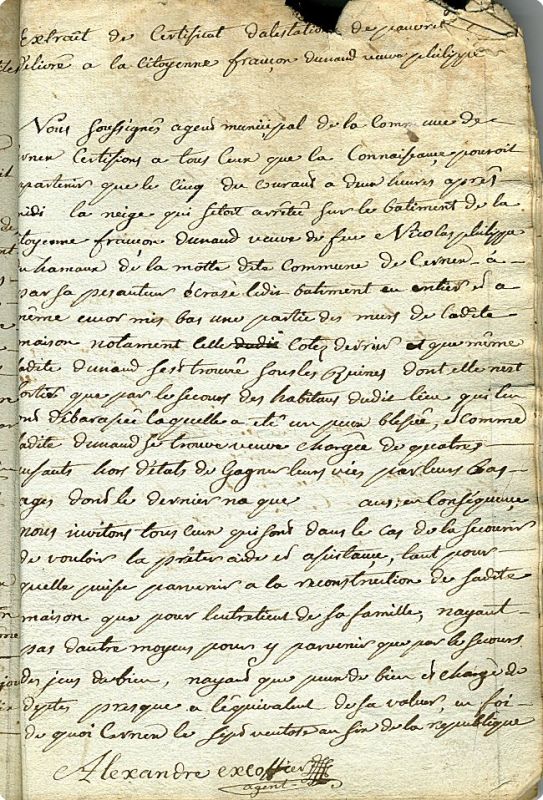 Extrait de Certificat dalestation de pauvret
Delivré a la Citoyenne françon dunand veuve philippe
Nous soussignés agent municipal de la Commune de
Cernex Certifions a tous Ceux que la Connaissance pouroit
apartenir que le Cinq du Courand a deux heures après
midi la neige qui setoit arrêtée sur le bâtiment de la
itoyenne françon Dunand veuve de feu Nicolas philippe
u hamaux de la motte dite Commune de Cernex à
par sa pesanteur écrasé ledit batiment en entier et a
même encor mis bas une partie des murs de ladite
maison notament Celle dudit Cotez derrier et que même
ladite dunand sest trouvé sous les Ruines dont elle nest
sortie que par le secours des habitans dudit lieu qui len
ont débarassée laquelle a eté un peux blessée, et Comme
ladite dunand se trouve veuve Chargée de quatre
enfants hors détats de Gagner leurs vies par leurs bas
ages dont le dernier na que ans, en Consequence
nous invitons tous Ceux qui sont dans le cas de la secourir
de vouloir la prêter aide et asistance, tant pour
quelle puise parvenir a la reconstruction de sadite
maison que pour lentretient de sa famille, nayant
pas dautre moyens pours y parvenir que par le secours
des jens du bien, nayant que peux de bien et chargé de
deptes presque a léquivalent de sa valeur, en foi
de quoi Cernex le sept ventose an six de la republique
Alexandre excoffier
agent